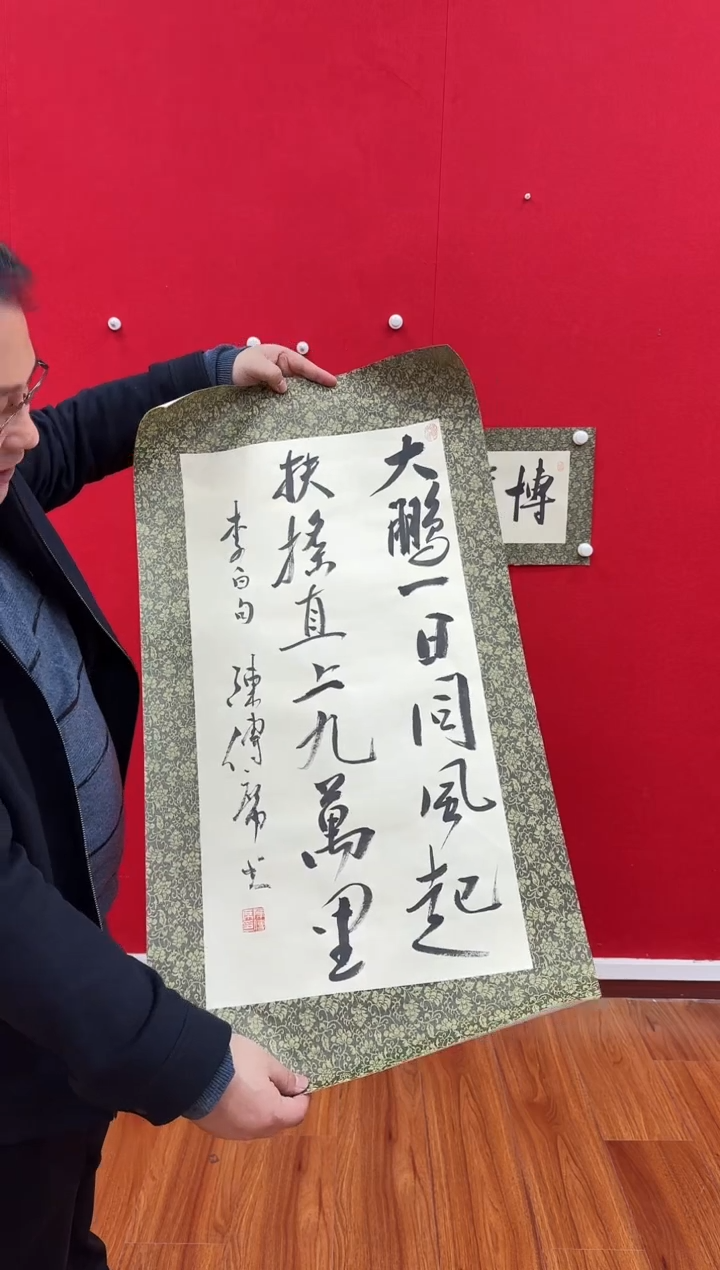 大鹏一日同風起
扶摇直上九萬里
李白句 陳傳席书
博